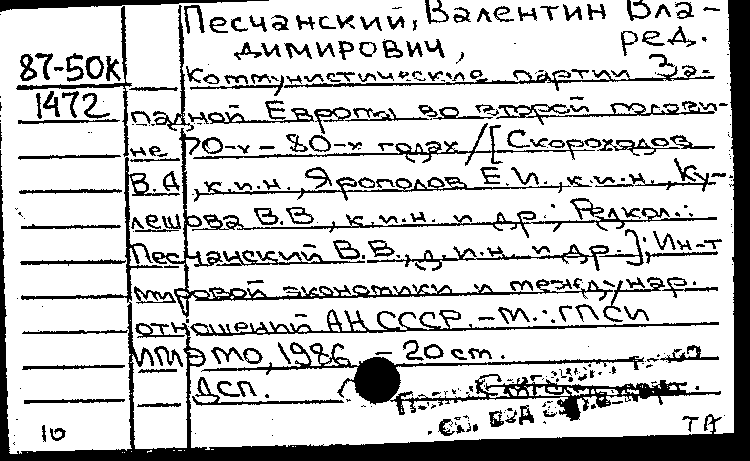 Песчанский, Валентин Вла-
димирович, ред.
87-50К Коммунистические партии За-
1472 падной Европы во второй полови-
не 70-х - 80-х годах / [Скороходов
В.А., к.и.н., Ярополов Е.И., к.и.н., Ку-
лешова В.В., к.и.н. и др.; Редкол.:
Песчанский В.В., д.и.н. и др.]; Ин-т
мировой экономики и междунар.
отношений АН СССР. - М.: ГПСИ
ИМЭМО, 1986. - 20 ст.
ДСП.
сп. под
10 ТА